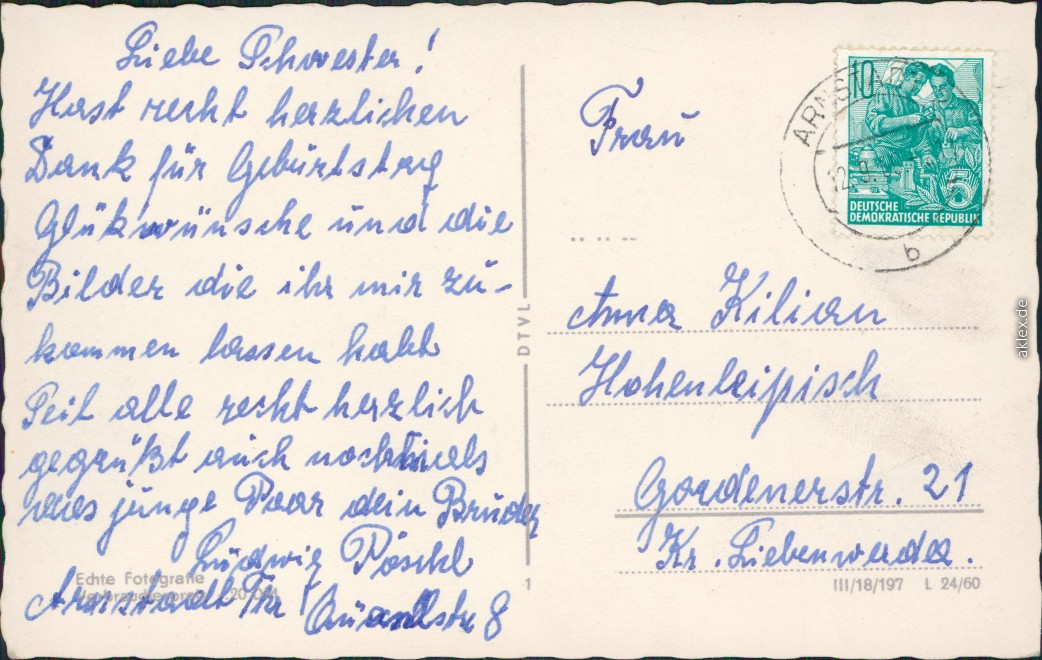 Liebe Schwester!
Hast recht herzlichen
Dank für Geburtstag
Glükwünsche und die
Bilder die ihr mir zu-
kommen lassen habt
Seit alle recht herzlich
gegrüßt auch nochmals
das junge Paar dein Bruder
Ludwig Pöschl
Arnstadt Thr
str 8
Echte Fotografie
DTVL
1
ARNSTADT
b
10
5
DEUTSCHE
DEMOKRATISCHE REPUBLIK
Frau
Anna Kilian
Hohenleipisch
Gordenerstr. 21
Kr. Liebenwerda.
III/18/197 L 24/60
aklex.de